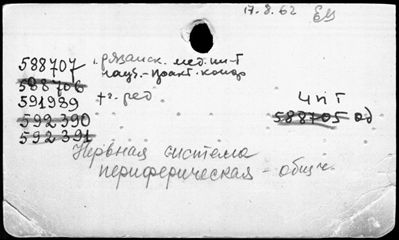 17.8.62
588707 . рязанск. мед. ин-т
науч.-практ. конф
588706
591989 + г. ред.
4 п Т
592390
588705 од
592391
Нервная система
периферическая - общ.